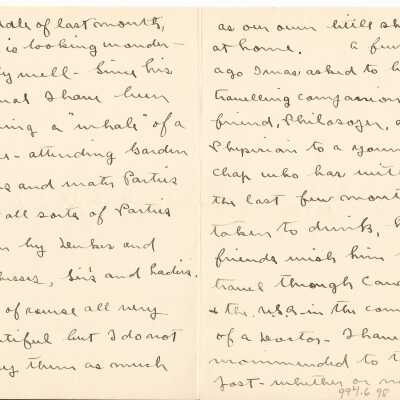 ddle of last month,
is looking wonder-
ly well - Since his
I have been
ing a "whale" of a
- attending Garden
and match Parties
all sorts of Parties
by Dukes and
Sir's and Ladies.
of course all very
tiful but I do not
them as much
as our own little sh
at home. a few
ago I was asked to b
travelling companion
friend, Philosoper, a
Physician to a youn
chap who has wit
the last few mont
taken to drink,
friends wish him
travel through Can
& the USA - in the com
of a Doctor - I have
mommended to t
post - whether or no
994.6.98